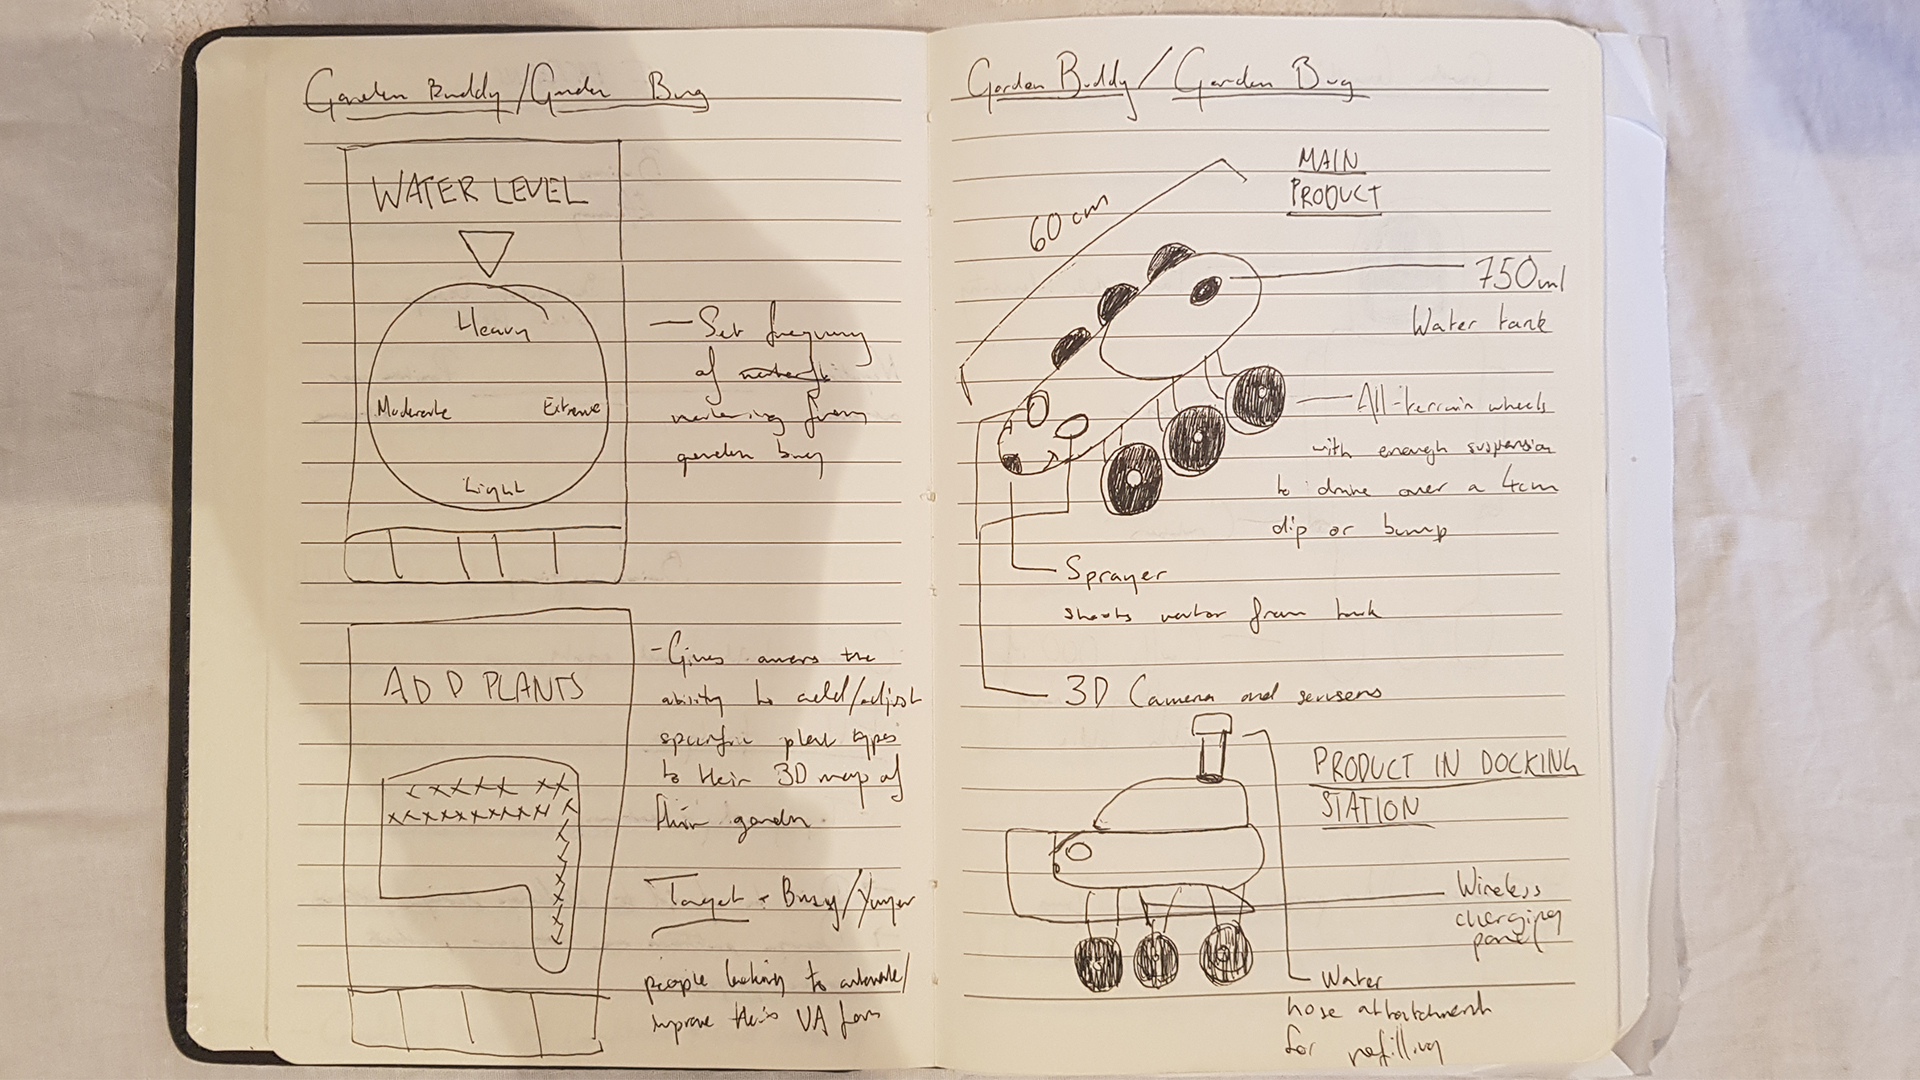 Garden Buddy / Garden Bug
WATER LEVEL
Heavy
Moderate
Extreme
Light
- Set frequency
of
watering from
garden bug
ADD PLANTS
- Gives owners the
ability to add/adjust
specific plant types
to their 3D map of
their garden
Target - Busy/
people looking to automate/
improve their
Garden Buddy / Garden Bug
MAIN
PRODUCT
60cm
750ml
Water tank
All-terrain wheels
with enough suspension
to drive over a 4cm
dip or bump
Sprayer
shoots water from tank
3D Camera and sensors
PRODUCT IN DOCKING
STATION
Wireless
charging
panel
Water
hose attatchment
for refilling